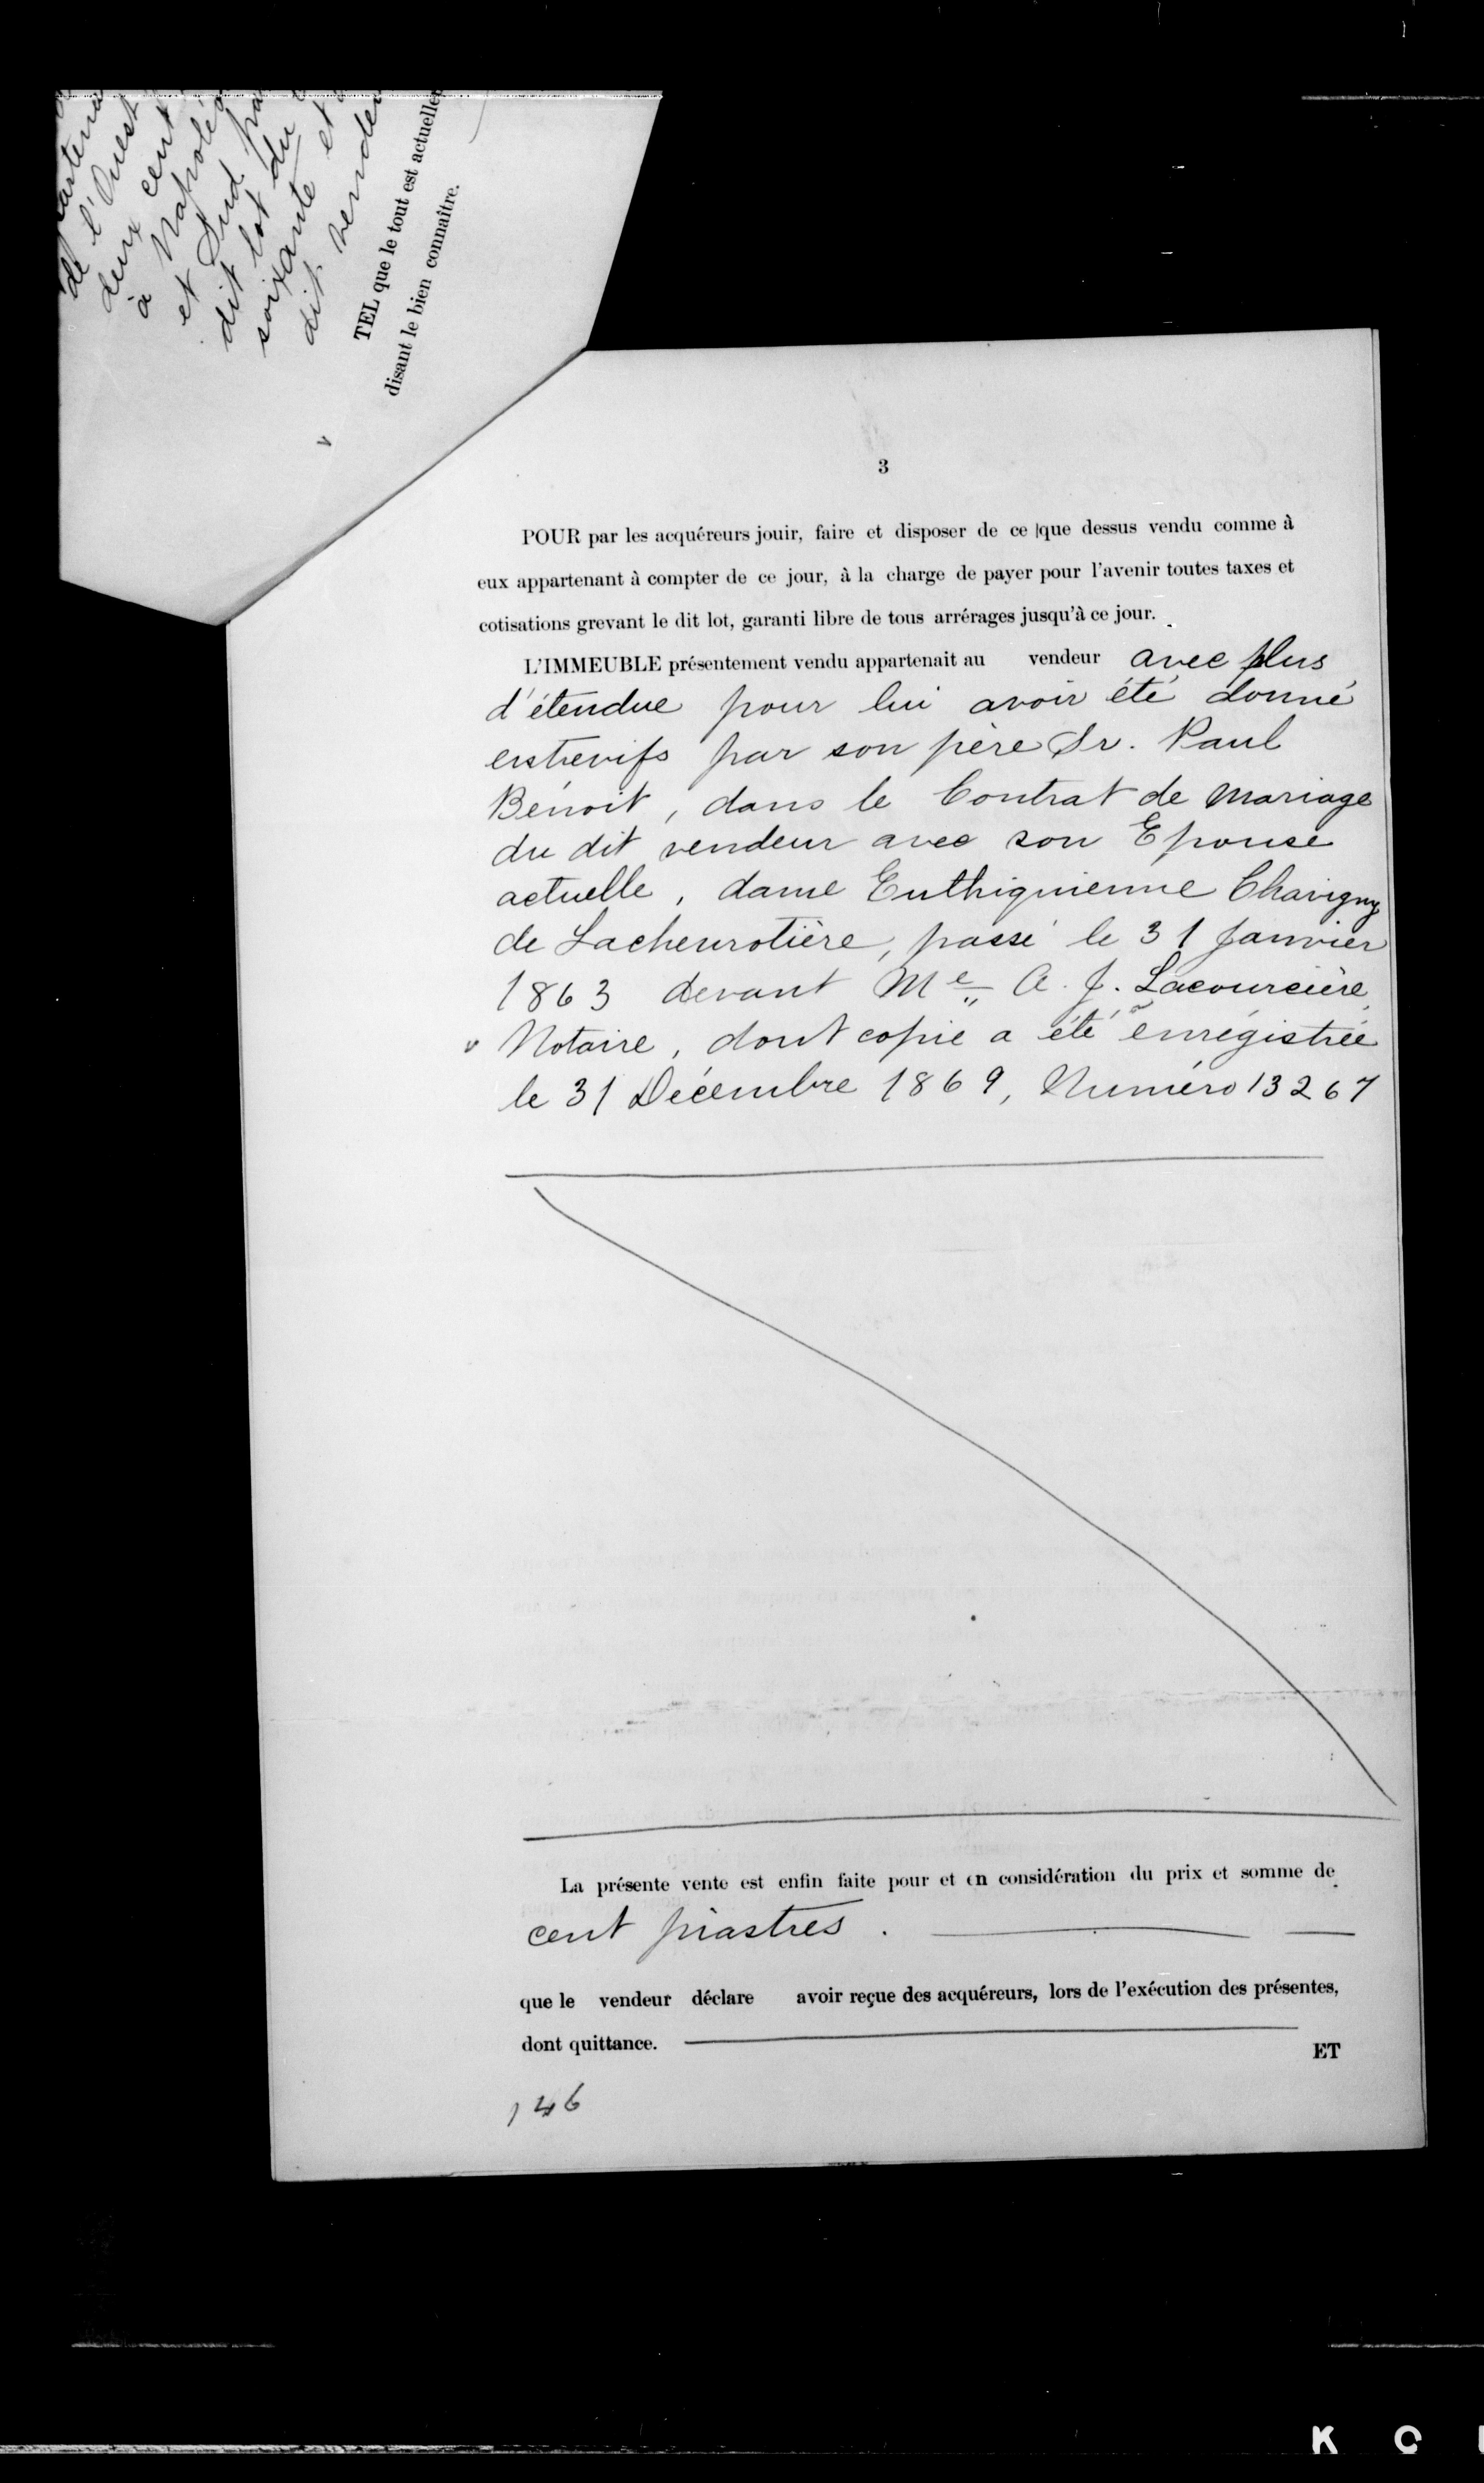 de l'Ouest
deux cent
à Napoléo
et Sud pa
dit lot du
soixante et
dit vende
TEL que le tout est actuelle
disant le bien connaître.
3
POUR par les acquéreurs jouir, faire et disposer de ce que dessus vendu comme à
eux appartenant à compter de ce jour, à la charge de payer pour l'avenir toutes taxes et
cotisations grevant le dit lot, garanti libre de tous arrérages jusqu'à ce jour.
L'IMMEUBLE présentement vendu appartenait au vendeur avec plus
d'étendue pour lui avoir été donné
entrevifs par son père Sr. Paul
Benoit, dans le Contrat de Mariage
du dit vendeur avec son Epouse
actuelle, dame Euthiquienne Chavigny
de Lacheurotière, passé le 31 Janvier
1863 devant Me A. J. Lacourcière,
Notaire, dont copie a été enrégistrée
le 31 Décembre 1869, Numéro 13267
La présente vente est enfin faite pour et en considération du prix et somme de
cent piastres.
que le vendeur déclare avoir reçue des acquéreurs, lors de l'exécution des présentes,
dont quittance.
ET
146
K O